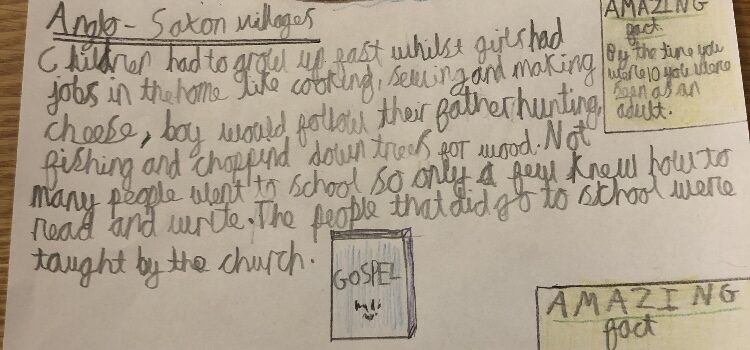 Anglo-Saxon villages
Children had to grow up fast whilst girls had
jobs in the home like cooking, sewing and making
choose, boy would follow their father hunting,
fishing and choppind down trees for wood. Not
many people went to school so only a few knew how to
read and write. The people that did go to school were
taught by the church.
AMAZING
fact.
By the time you
were 10 you were
seen as an
adult.
GOSPEL
AMAZING
fact